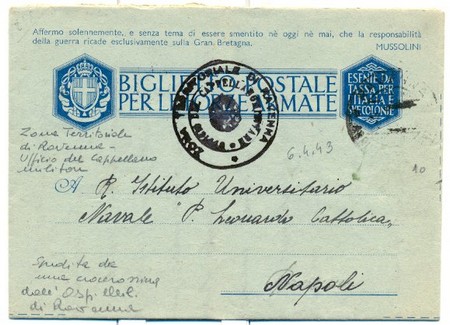 Affermo solennemente, e senza tema di essere smentito nè oggi nè mai, che la responsabilità
della guerra ricade esclusivamente sulla Gran. Bretagna.
MUSSOLINI
BIGLIETTO POSTALE
PER LE FORZE ARMATE
ESENTE DA
TASSA PER
L'ITALIA E
LE COLONIE
ZONA TERRITORIALE DI RAVENNA
Zona Territoriale
di Ravenna -
Ufficio del Cappellano
militare
6.4.43
10
A R. Istituto Universitario
Navale "P. Leonardo Cattolica,
Napoli
Spedita da
una crocerossina
dall'Osp. Mil.
di Ravenna